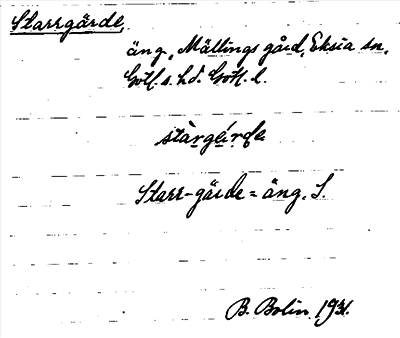 Starrgärde,
äng, Mällings gård, Eksta sn,
Gotl. s. hd. Gotl. l.
stàrgǽrde
Starr-gärde = äng, S.
B. Bolin 1931.